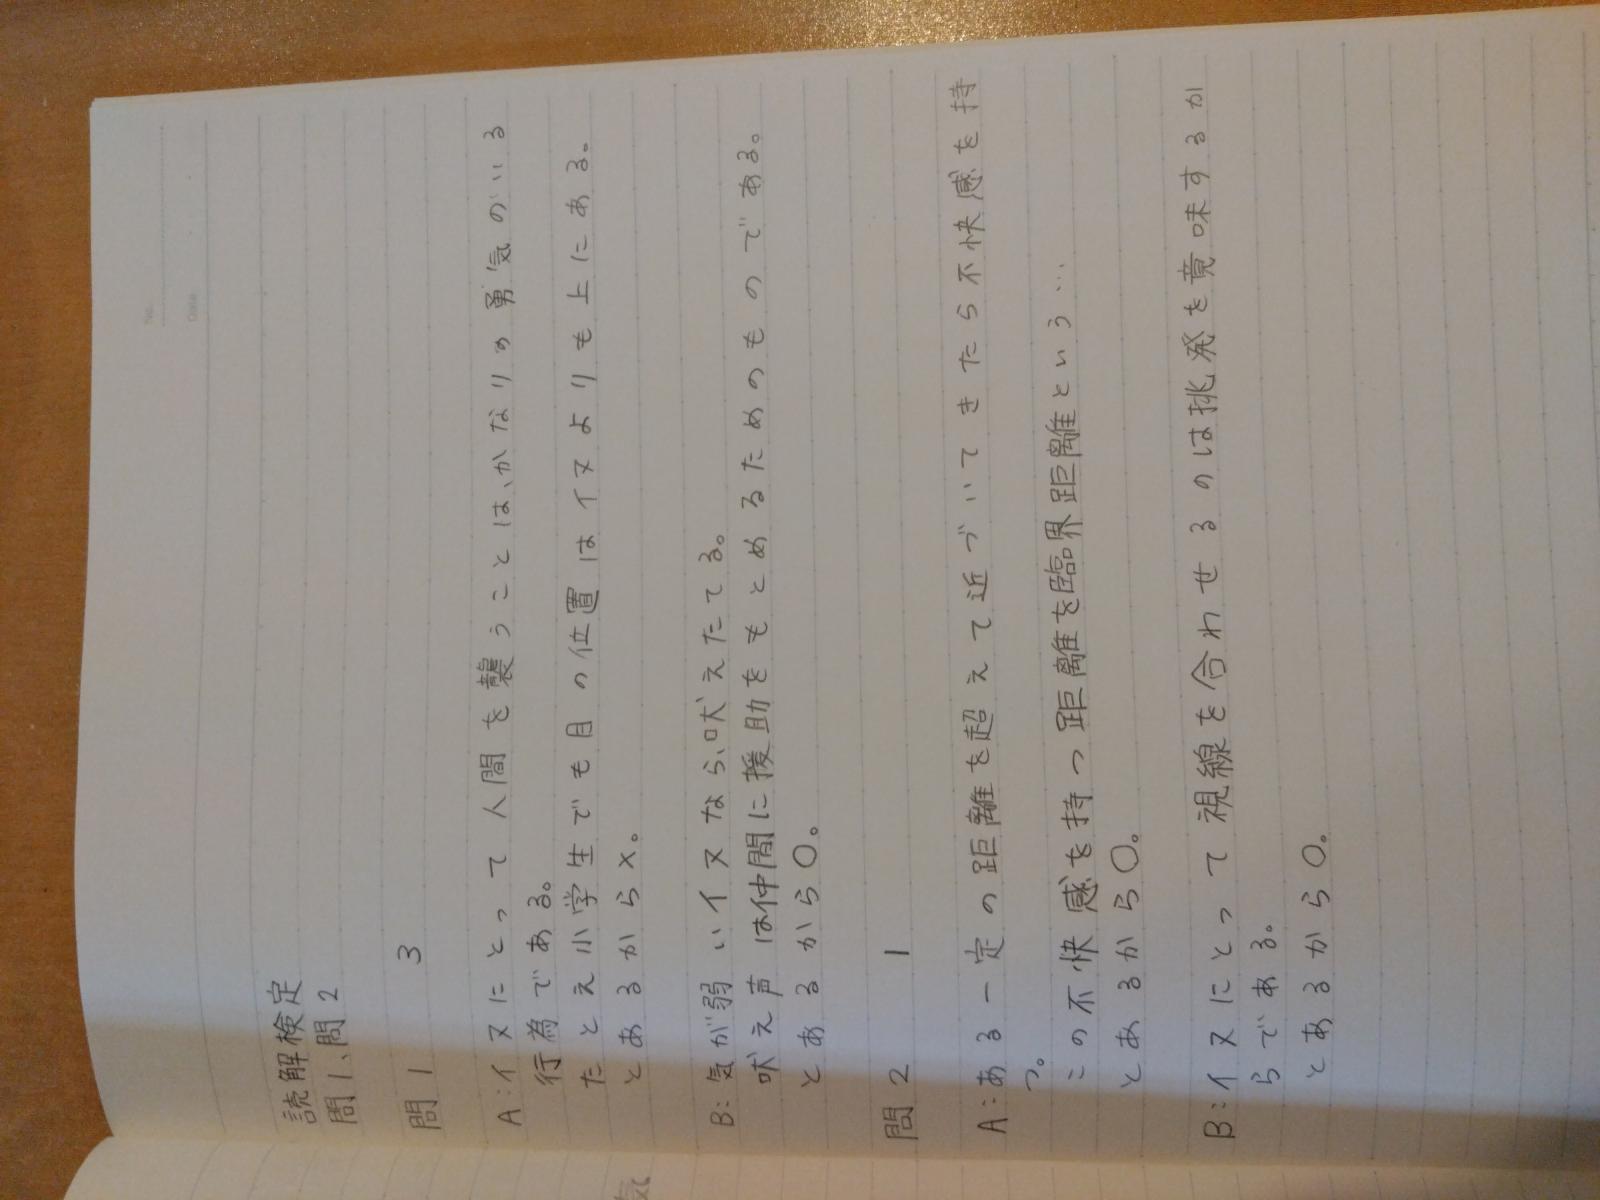 No.
Date
読解検定
問1、問2
問1 3
A:イヌにとって人間を襲うことは、かなりの勇気のいる
行為である。
たとえ小学生でも目の位置はイヌよりも上にある。
とあるから×。
B:気が弱いイヌなら、吠えたてる。
吠え声は仲間に援助をもとめるためのものである。
とあるから○。
問2 1
A:ある一定の距離を超えて近づいてきたら不快感を持
つ。
この不快感を持つ距離を臨界距離という…
とあるから○。
B:イヌにとって視線を合わせるのは挑発を意味するか
らである。
とあるから○。
気